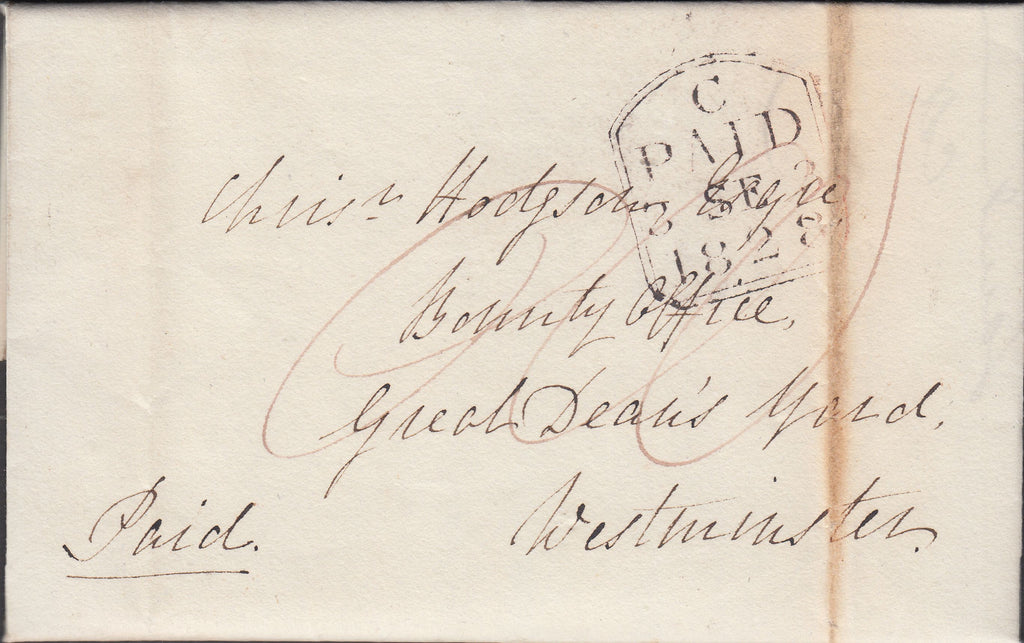 C
PAID
3 SE 3
1828
Chrisr. Hodgson Esqre
Bounty Office,
Great Dean's Yard,
Westminster.
Paid.